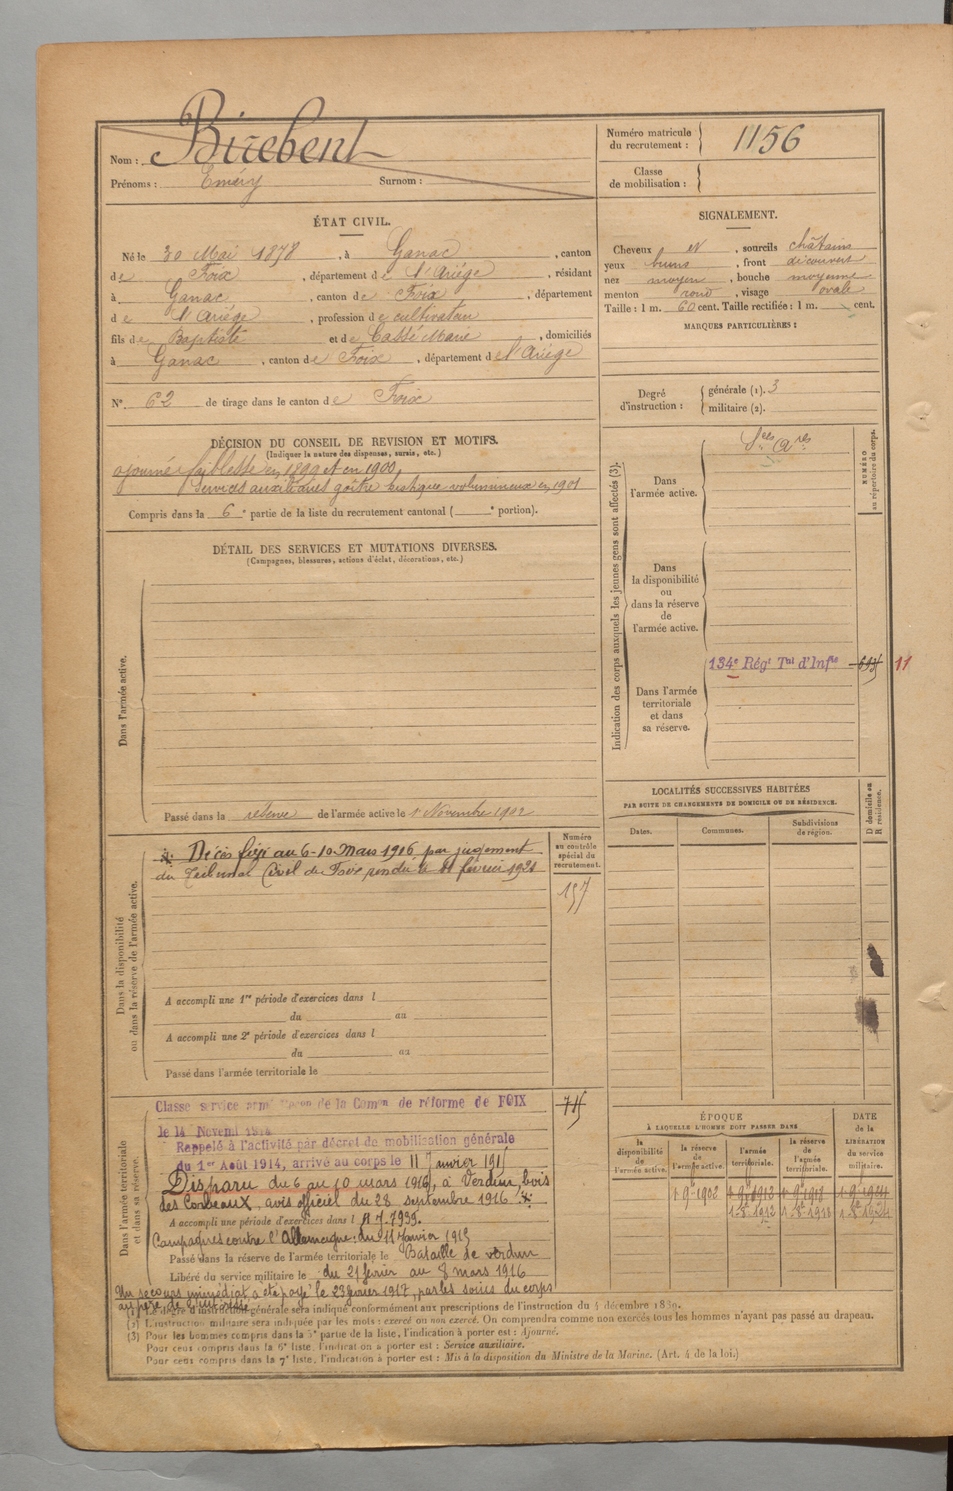 Nom : Birebent
Prénoms : Eméry Surnom :
Numéro matricule du recrutement : 1156
Classe de mobilisation :
ÉTAT CIVIL.
Né le 30 Mai 1878, à Ganac, canton
de Foix, département de l'Ariége, résidant
à Ganac, canton de Foix, département
de l'Ariége, profession de cultivateur
fils de Baptiste et de Cassé Marie, domiciliés
à Ganac, canton de Foix, département de l'Ariége
N° 62 de tirage dans le canton de Foix
SIGNALEMENT.
Cheveux et, sourcils châtains
yeux bruns, front découvert
nez moyen, bouche moyenne
menton rond, visage ovale
Taille : 1 m. 60 cent. Taille rectifiée : 1 m. cent.
MARQUES PARTICULIÈRES :
Degré d'instruction : générale (1). 3
militaire (2).
DÉCISION DU CONSEIL DE REVISION ET MOTIFS.
(Indiquer la nature des dispenses, sursis, etc.)
ajourné faiblesse en 1899 et en 1900
Services auxiliaires goître kystique volumineux en 1901
Compris dans la 6e partie de la liste du recrutement cantonal ( e portion).
DÉTAIL DES SERVICES ET MUTATIONS DIVERSES.
(Campagnes, blessures, actions d'éclat, décorations, etc.)
Dans l'armée active.
Passé dans la réserve de l'armée active le 1 Novembre 1902
Indication des corps auxquels les jeunes gens sont affectés (3).
NUMÉRO au répertoire du corps.
Dans l'armée active.
Sces Ares
Dans la disponibilité ou dans la réserve de l'armée active.
Dans l'armée territoriale et dans sa réserve.
134e Régt Tal d'Infie 11
LOCALITÉS SUCCESSIVES HABITÉES
PAR SUITE DE CHANGEMENTS DE DOMICILE OU DE RÉSIDENCE.
Dates. Communes. Subdivisions de région. D domicile ou R résidence.
Dans la disponibilité ou dans la réserve de l'armée active.
Numéro au contrôle spécial du recrutement.
Décès fixé au 6-10 Mars 1916 par jugement
du Tribunal Civil de Foix rendu le 11 février 1921
157
A accompli une 1re période d'exercices dans l
du au
A accompli une 2e période d'exercices dans l
du au
Passé dans l'armée territoriale le
Dans l'armée territoriale et dans sa réserve.
Classe service armé de la Comon de réforme de FOIX
le 14 Novemb 1914
Rappelé à l'activité par décret de mobilisation générale
du 1er Août 1914, arrivé au corps le 11 Janvier 1915
Disparu du 6 au 10 mars 1916, à Verdun, bois
des Corbeaux, avis officiel du 28 septembre 1916
A accompli une période d'exercices dans l A J. 7939.
Campagnes contre l'Allemagne : du 11 Janvier 1915
Passé dans la réserve de l'armée territoriale le Bataille de verdun
Libéré du service militaire le du 21 février au 8 mars 1916
Un secours immédiat a été payé le 23 février 1917, par les soins du corps
au père de
ÉPOQUE
À LAQUELLE L'HOMME DOIT PASSER DANS
la disponibilité de l'armée active. la réserve de l'armée active. l'armée territoriale. la réserve de l'armée territoriale.
DATE de la LIBÉRATION du service militaire.
1 9bre 1902 1 9bre 1912 1 9bre 1918 1 9bre 1924
1 8bre 1912 1 8bre 1918 1 8bre 1924
(1) Le degré d'instruction générale sera indiqué conformément aux prescriptions de l'instruction du 4 décembre 1889.
(2) L'instruction militaire sera indiquée par les mots : exercé ou non exercé. On comprendra comme non exercés tous les hommes n'ayant pas passé au drapeau.
(3) Pour les hommes compris dans la 5e partie de la liste, l'indication à porter est : Ajourné.
Pour ceux compris dans la 6e liste, l'indication à porter est : Service auxiliaire.
Pour ceux compris dans la 7e liste, l'indication à porter est : Mis à la disposition du Ministre de la Marine. (Art. 4 de la loi.)